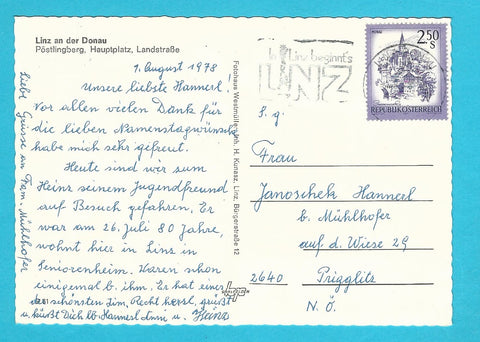 Linz an der Donau
Pöstlingberg, Hauptplatz, Landstraße
1. August 1978
Unsere liebste Hannerl.
Vor allen vielen Dank für
die lieben Namenstagwünsche
habe mich sehr gefreut.
Heute sind wir zum
Heinz seinem Jugendfreund
auf Besuch gefahren. Er
war am 26. Juli 80 Jahre,
wohnt hier in Linz in
Seniorenheim. Waren schon
einigemal b. ihm. Er hat einer
der schönsten Zim. Recht herzl. grüßt
u. küßt Dich lb. Hannerl Anni u. Heinz
Liebe Grüsse an Fam. Mühlhofer
Fotohaus Westmüller, Inh. H. Kunasz, Linz, Bürgerstraße 12
In Linz beginnt's
LINZ
2.50
S
REPUBLIK ÖSTERREICH
S. g.
Frau
Janoschek Hannerl
b. Mühlhofer
auf d. Wiese 29
2640 Prigglitz
N. Ö.